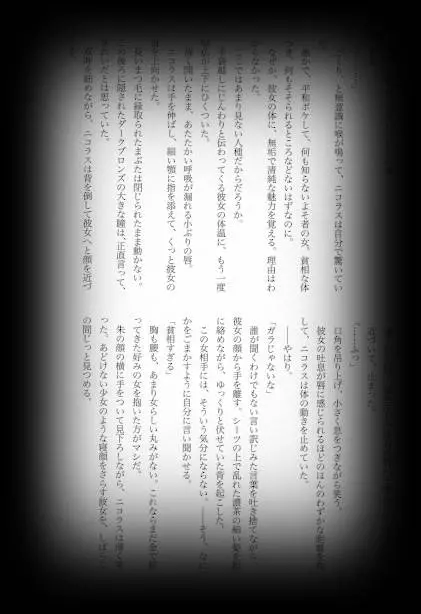 と無意識に喉が鳴って、ニコラスは自分で驚いてい
かで、平和ボケして、何も知らないよそ者の女。貧相な体
何もそそられるところなどないはずなのに。
なぜか、彼女の体に、無垢で清純な魅力を覚える。理由はわ
らなかった。
ではあまり見ない人種だからだろうか。
越しにじんわりと伝わってくる彼女の体温に、もう一度
上下にひくついた。
開いたまま、あたたかい呼吸が漏れる小ぶりの唇。
コラスは手を伸ばし、細い顎に指を添えて、くっと彼女の
を上向かせた。
長いまつ毛に縁取られたまぶたは閉じられたまま動かない。
の後ろに隠されたダークブロンズの大きな瞳は、正直言って、
だとは思っていた。
を細めながら、ニコラスは背を倒して彼女へと顔を近づ
近づいて、止まった。
「……ふっ」
口角を吊り上げ、小さく息をつきながら笑う。
彼女の吐息が唇に感じられるほどのほんのわずかな距離を
して、ニコラスは体の動きを止めていた。
――やはり。
「ガラじゃないな」
誰が聞くわけでもない言い訳じみた言葉を吐き捨てなが
彼女の顔から手を離す。シーツの上で乱れた濃茶の細い髪を
に絡めながら、ゆっくりと伏せていた背を起こした。
この女相手には、そういう気分にならない。――そう、
かをごまかすように自分に言い聞かせる。
「貧相すぎる」
胸も腰も、あまり女らしい丸みがない。これならまだ金で
ってきた好みの女を抱いた方がマシだ。
朱の顔の横に手をついて見下ろしながら、ニコラスは薄く
った。あどけない少女のような寝顔をさらす彼女を、しば
の間じっと見つめる。